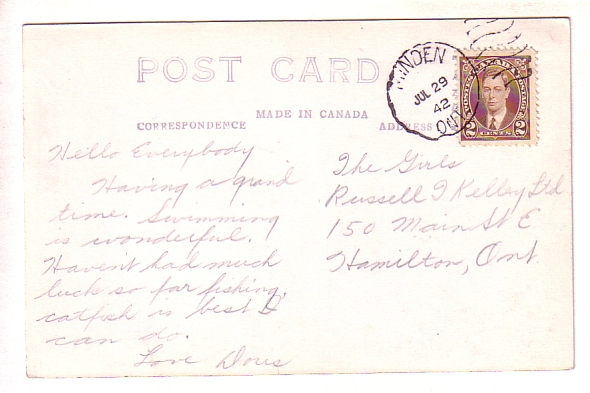 POST CARD
MADE IN CANADA
CORRESPONDENCE
ADDRESS
MINDEN
JUL 29
42
ONT
POSTES CANADA POSTAGE
2 CENTS 2
Hello Everybody
Having a grand
time. Swimming
is wonderful.
Haven't had much
luck so far fishing,
catfish is best I
can do.
Love Doris
The Girls
Russell T Kelley Ltd
150 Main St E
Hamilton, Ont.